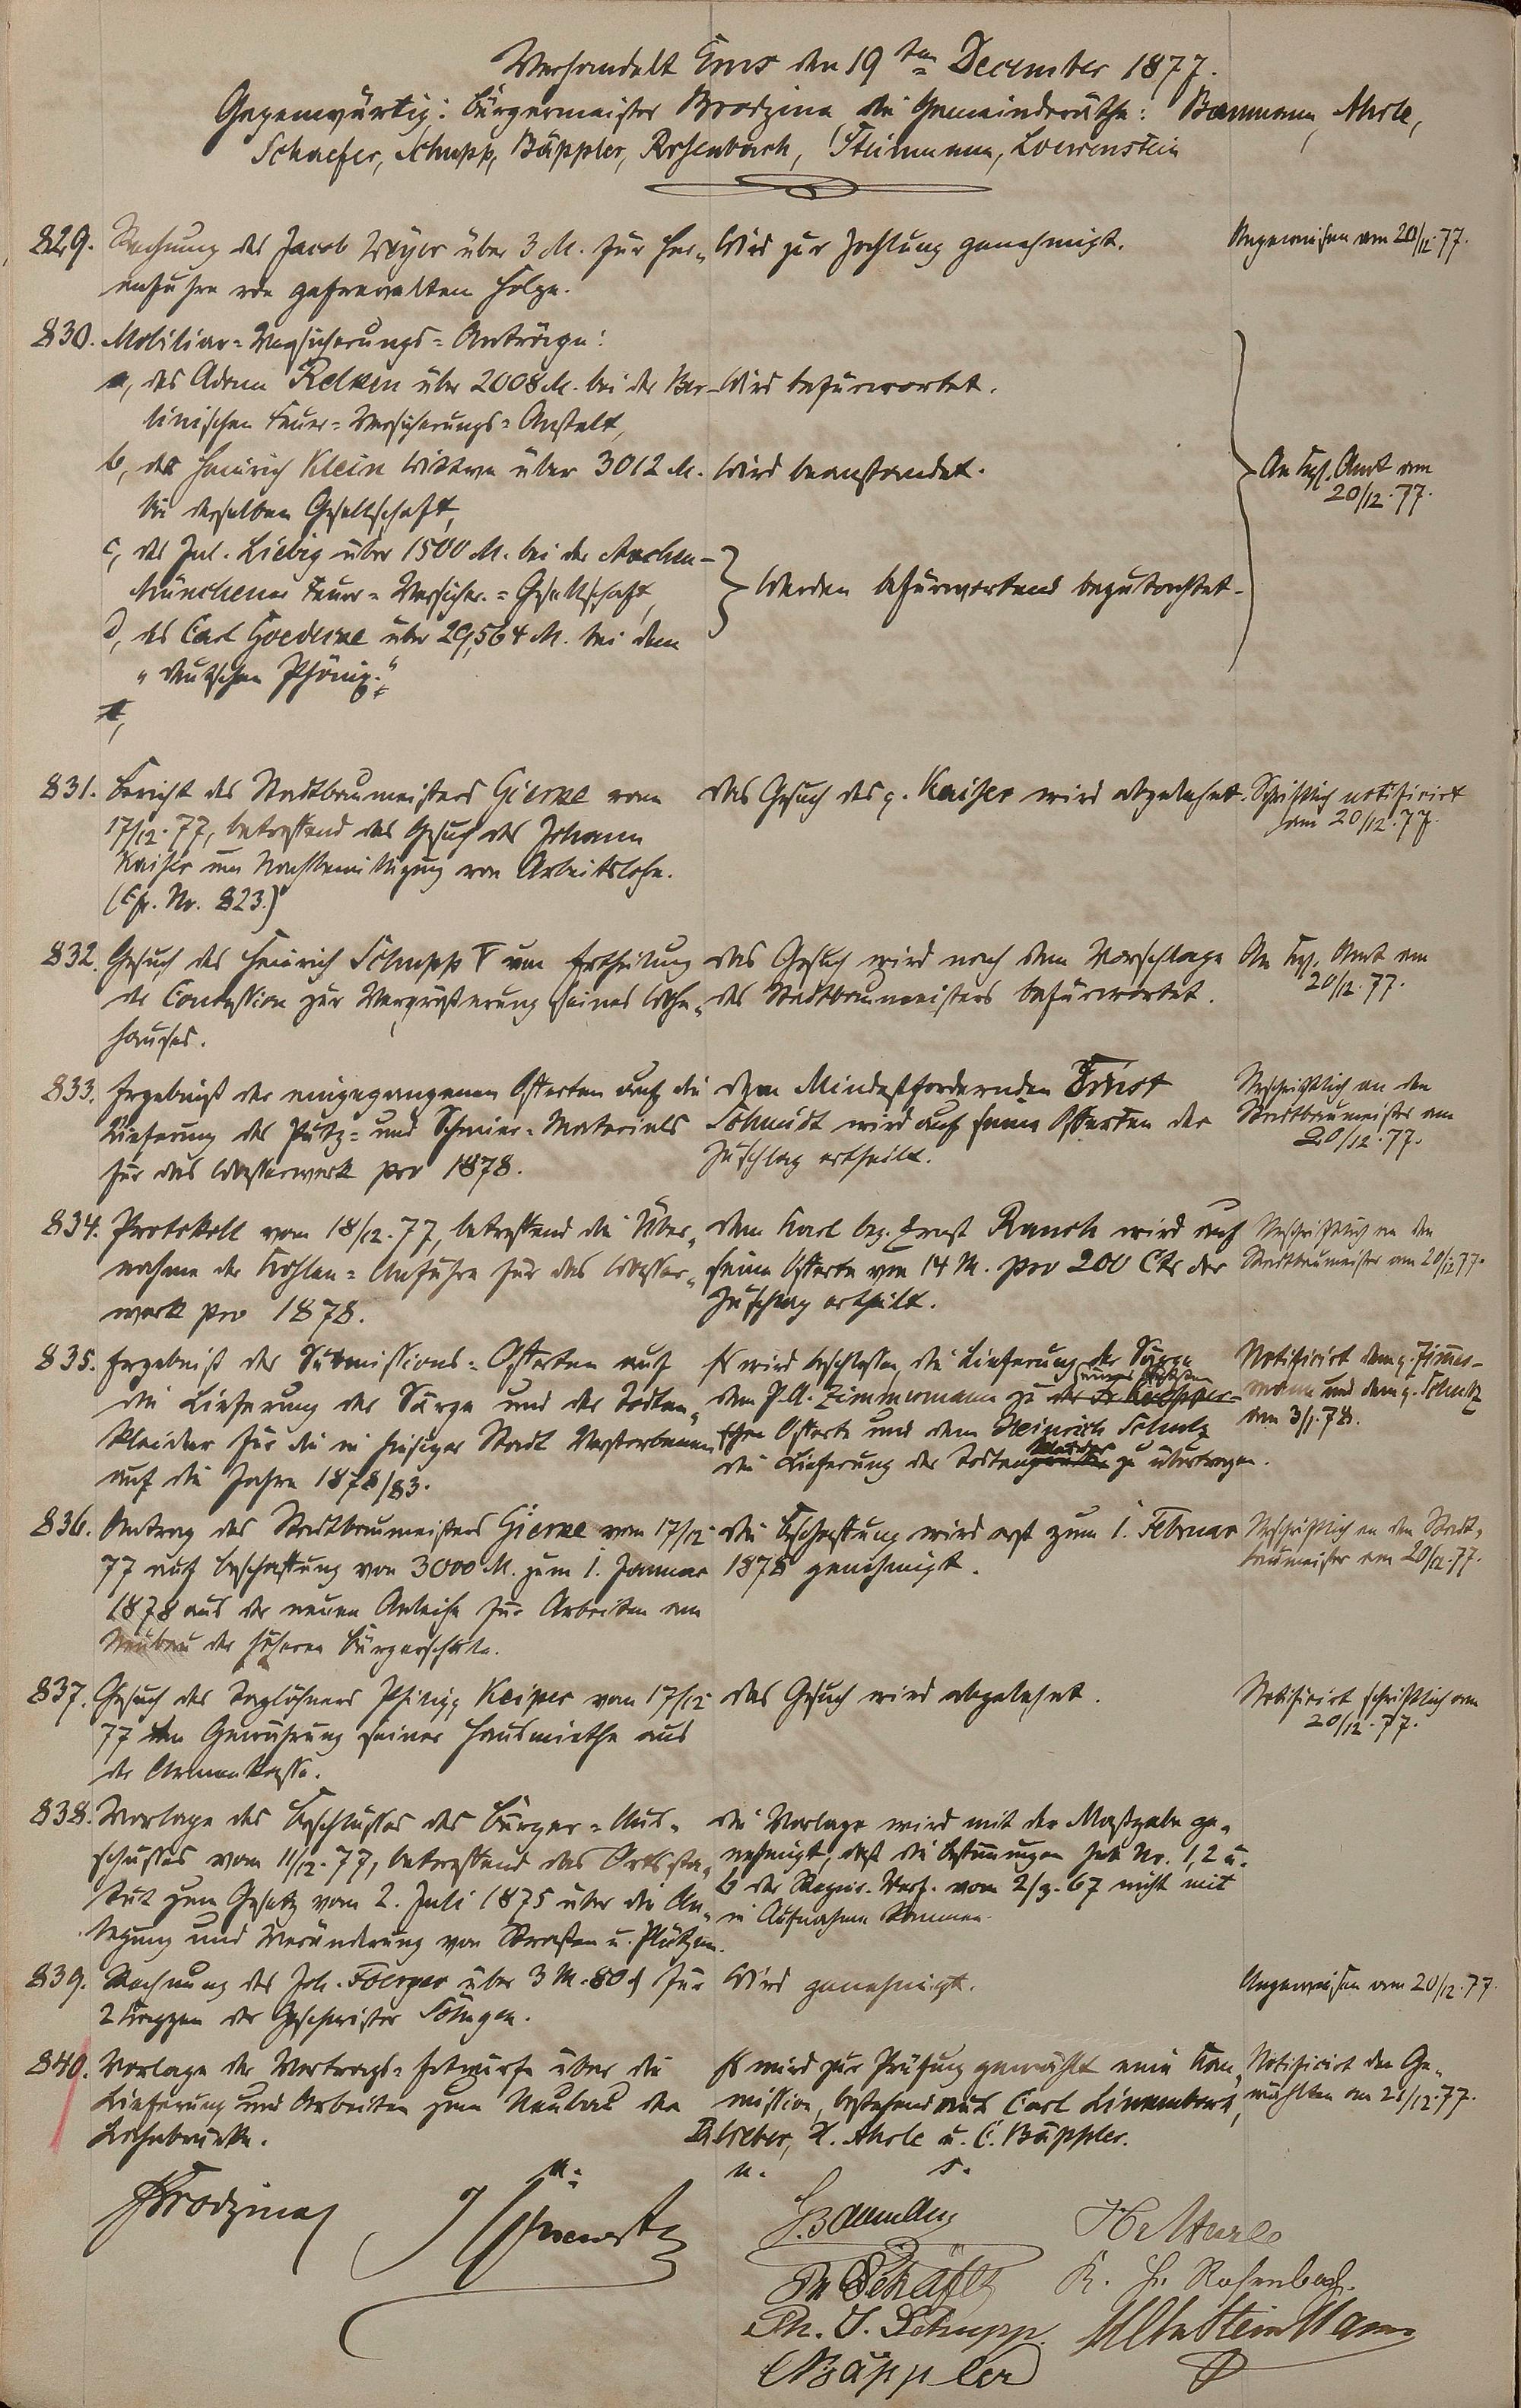 Verhandelt Ems den 19ten December 1877.
Gegenwärtig: Bürgermeister Brodzina, die Gemeinderäthe: Baumann, Ahrle,
Schaefer, Schupp, Bäppler, Rosenbach, Steinmann, Loewenstein
829. Rechnung des Jacob Weyer über 3 M. für Her-
anfuhre von gefrevelten Holze.
Wird zur Zahlung genehmigt.
Angewiesen am 20/12.77.
830. Mobiliar=Versicherungs=Anträge:
a, des Adam Relken über 2008 M. bei der Ber-
linischen Feuer=Versicherungs=Anstalt,
Wird befürwortet.
b, der Heinrich Klein Wittwe über 3012 M.
bei derselben Gesellschaft,
Wird beanstandet.
c, des Jul. Liebig über 1500 M. bei der Aachen-
Münchener Feuer=Versicher.=Gesellschaft,
d, des Carl Goedecke über 29,564 M. bei dem
"deutschen Phönix."
Werden befürwortend begutachtet.
An Kgl. Amt am
20/12.77.
831. Bericht des Stadtbaumeisters Gierke vom
17/12.77, betreffend das Gesuch des Johann
Kaiser um Nachbewilligung von Arbeitslohn.
(Cfr. No. 823.)
Das Gesuch des p. Kaiser wird abgelehnt.
Schriftlich notificirt
am 20/12.77.
832. Gesuch des Heinrich Schupp V um Ertheilung
der Concession zur Vergrößerung seines Wohn-
hauses.
Das Gesuch wird nach dem Vorschlage
des Stadtbaumeisters befürwortet.
An Kgl. Amt am
20/12.77.
833. Ergebniß der eingegangenen Offerten auf die
Lieferung des Putz= und Schmier=Materials
für das Wasserwerk pro 1878.
Dem Mindestfordernden Ernst
Schmidt wird auf seine Offerten der
Zuschlag ertheilt.
Urschriftlich an den
Stadtbaumeister am
20/12.77.
834. Protokoll vom 18/12.77, betreffend die Über-
nahme der Kohlen=Anfuhre für das Wasser-
werk pro 1878.
Dem Karl bez. Ernst Rauch wird auf
seine Offerte von 14 M. pro 200 Ctr der
Zuschlag ertheilt.
Urschriftlich an den
Stadtbaumeister am 20/12.77.
835. Ergebniß der Submissions=Offerten auf
die Lieferung der Särge und der Todten-
kleider für die in hiesiger Stadt Verstorbenen
auf die Jahre 1878/83.
Es wird beschlossen, die Lieferung der Särge
dem P.A. Zimmermann zu der
Offerte und dem Heinrich Schulz
die Lieferung der Todtenkleider zu übertragen.
Notificirt dem p. Zimmer-
mann und dem p. Schulz
am 3/1.78.
836. Antrag des Stadtbaumeisters Gierke vom 17/12
77 auf Beschaffung von 3000 M. zum 1. Januar
1878 aus der neuen Anleihe für Arbeiten am
Neubau der höheren Bürgerschule.
Die Beschaffung wird erst zum 1. Februar
1878 genehmigt.
Urschriftlich an den Stadt-
baumeister am 20/12.77.
837. Gesuch des Taglöhners Philipp Keiper vom 17/12
77 um Gewährung seiner Hausmiethe aus
der Armenkasse.
Das Gesuch wird abgelehnt.
Notificirt schriftlich am
20/12.77.
838. Vorlage des Beschlusses des Bürger=Aus-
schusses vom 11/12.77, betreffend das Ortssta-
tut zum Gesetz vom 2. Juli 1875 über die An-
legung und Veränderung von Straßen u. Plätzen.
Die Vorlage wird mit der Maßgabe ge-
nehmigt, daß die Bestimmungen sub No. 1, 2 u.
6 der Regier. Verf. vom 2/9.67 nicht mit
in Aufnahme kommen.
839. Rechnung des Joh. für 3 M. 80 ₰ für
2 Treppen der Geschwister
Wird genehmigt.
Angewiesen am 20/12.77.
840. Vorlage der Vertrags=Entwürfe über die
Lieferung und Arbeiten zum Neubau der
Lahnbrücke.
Es wird zur Prüfung gewählt eine Com-
mission, bestehend aus Carl Linkenbach,
D. Weber, H. Ahrle u. C. Bäppler.
Notificirt den Ge-
wählten am 21/12.77.
u. u. s.
Brodzina
Baumann
H. Ahrle
Schäfer
K. H. Rosenbach.
Ph. J. Schupp.
Steinmann
C Bäppler